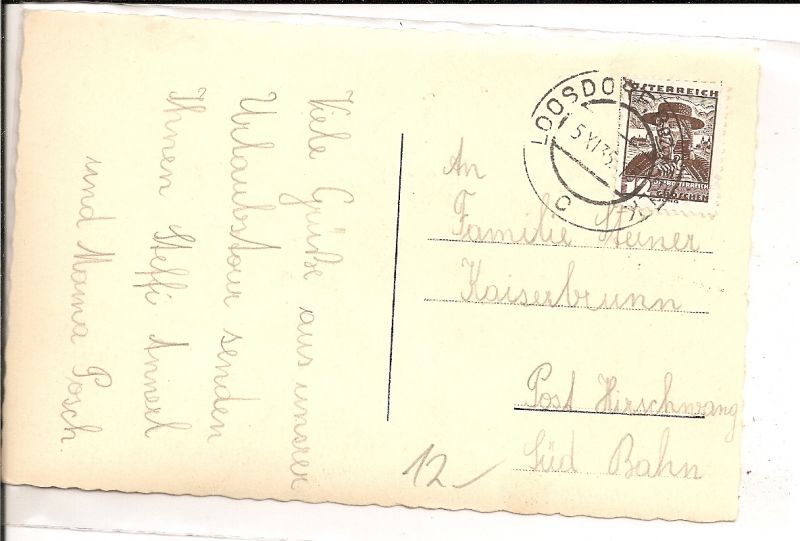 Viele Grüße aus unsrer
Urlaubstour senden
Ihnen Steffi Annerl
und Mama Posch
LOOSDORF
5.XI.35
C
ÖSTERREICH
12
GROSCHEN
An
Familie Steiner
Kaiserbrunn
Post Hirschwang
Süd Bahn
12